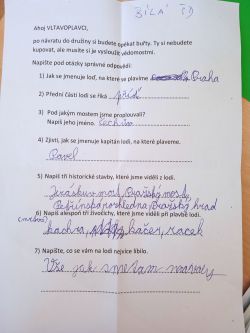 BÍLÁ ČD
Ahoj VLTAVOPLAVCI,
po návratu do družiny si budete opékat buřty. Ty si nebudete
kupovat, ale musíte si je vysloužit vědomostmi.
Napište pod otázky správné odpovědi:
1) Jak se jmenuje loď, na které se plavíme Praha
2) Přední části lodi se říká příď
3) Pod jakým mostem jsme proplouvali?
Napiš jeho jméno. Čechův
4) Zjisti, jak se jmenuje kapitán lodi, na které plaveme.
Pavel
5) Napiš tři historické stavby, které jsme viděli z lodi.
Jiráskův most, Pražský most,
Petřínská rozhledna, Pražský hrad
6) Napiš alespoň tři živočichy, které jsme viděli při plavbě lodí.
kachna, kačer, racek
7) Napište, co se vám na lodi nejvíce líbilo.
Vše jak